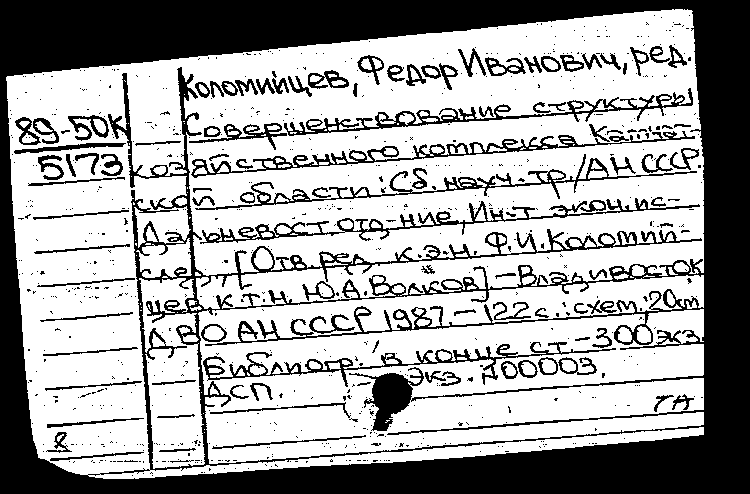 Коломийцев, Федор Иванович, ред.
89-50К
5173
Совершенствование структуры
хозяйственного комплекса Камчат-
ской области: Сб. науч. тр. / АН СССР.
Дальневост. отд-ние, Ин-т экон. ис-
след.; [Отв. ред. к.э.н. Ф.И. Коломий-
цев, к.т.н. Ю.А. Волков]. – Владивосток
ДВО АН СССР 1987. – 122 с.: схем.; 20 см
Библиогр. в конце ст. – 300 экз.
ДСП. Экз. №00003.